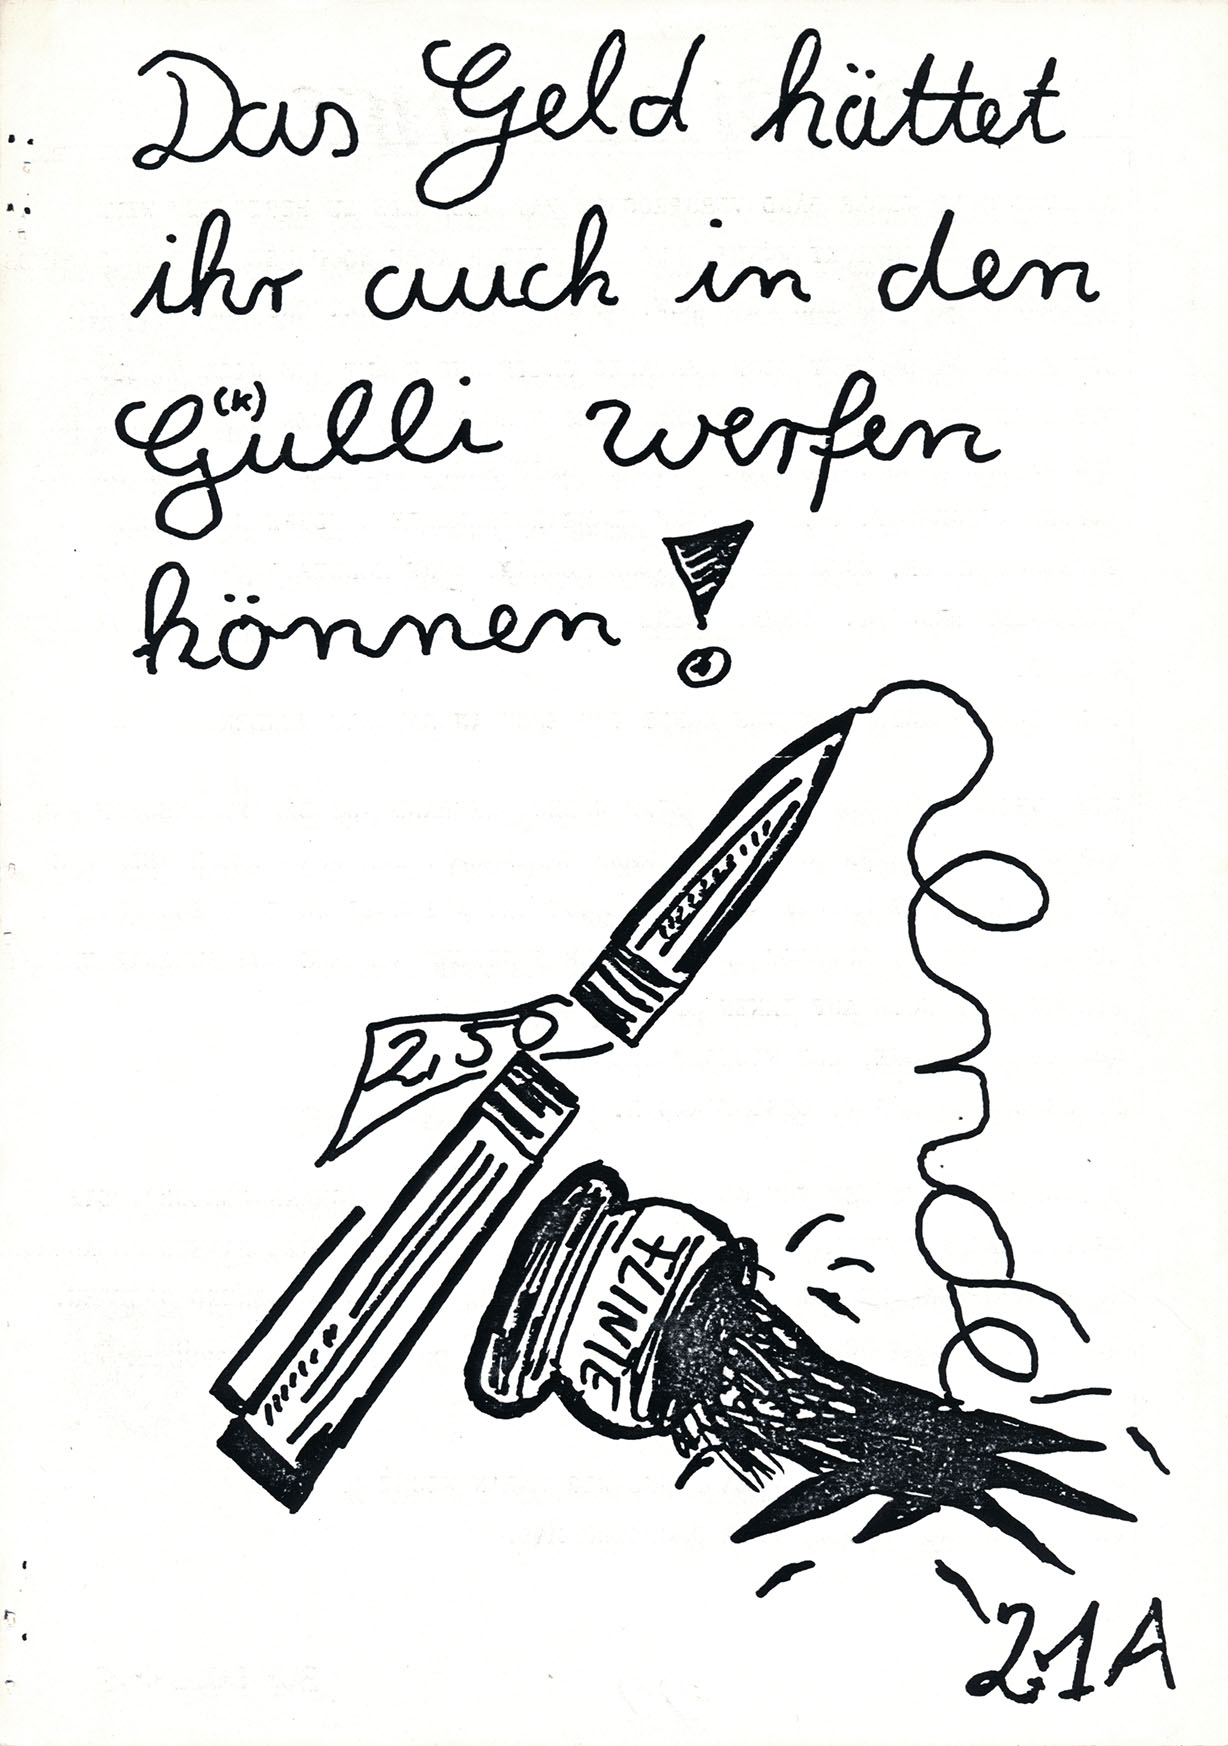 Das Geld hättet
ihr auch in den
(k)
Gulli werfen
können!
2,50
FLINTE
21A